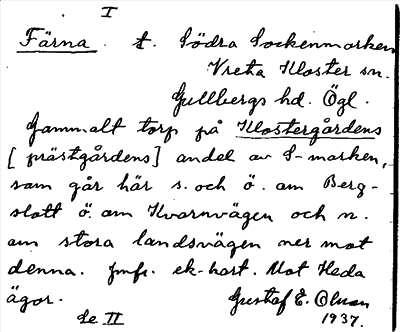 I
Färna. t. Södra Sockenmarken
Vreta Kloster sn.
Gullbergs hd. Ögl.
Gammalt torp på Klostergårdens
[prästgårdens] andel av S-marken,
som går här s. och ö. om Berg-
slott ö. om Kvarnvägen och n.
om stora landsvägen ner mot
denna. Jmfr. ek-kart. Mot Heda
ägor. Gustaf E. Olson
Se II 1937.